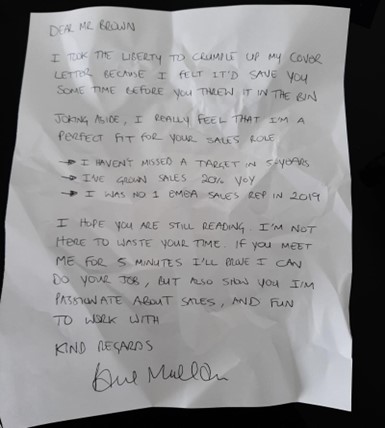 DEAR MR BROWN
I TOOK THE LIBERTY TO CRUMPLE UP MY COVER
LETTER BECAUSE I FELT IT'D SAVE YOU
SOME TIME BEFORE YOU THREW IT IN THE BIN
JOKING ASIDE, I REALLY FEEL THAT I'M A
PERFECT FIT FOR YOUR SALES ROLE
→ I HAVEN'T MISSED A TARGET IN 5 YEARS
→ I'VE GROWN SALES 20% YOY
→ I WAS NO 1 EMEA SALES REP IN 2019
I HOPE YOU ARE STILL READING. I'M NOT
HERE TO WASTE YOUR TIME. IF YOU MEET
ME FOR 5 MINUTES I'LL PROVE I CAN
DO YOUR JOB, BUT ALSO SHOW YOU I'M
PASSIONATE ABOUT SALES, AND FUN
TO WORK WITH
KIND REGARDS